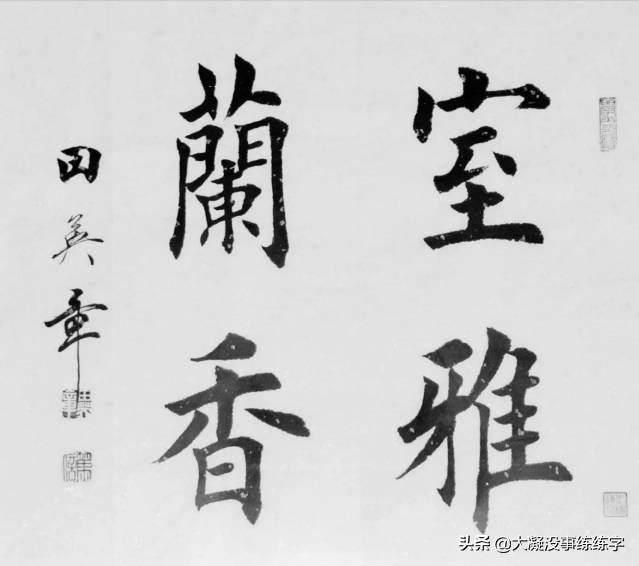 室雅
蘭香
田英章
头条 @大凝没事练练字